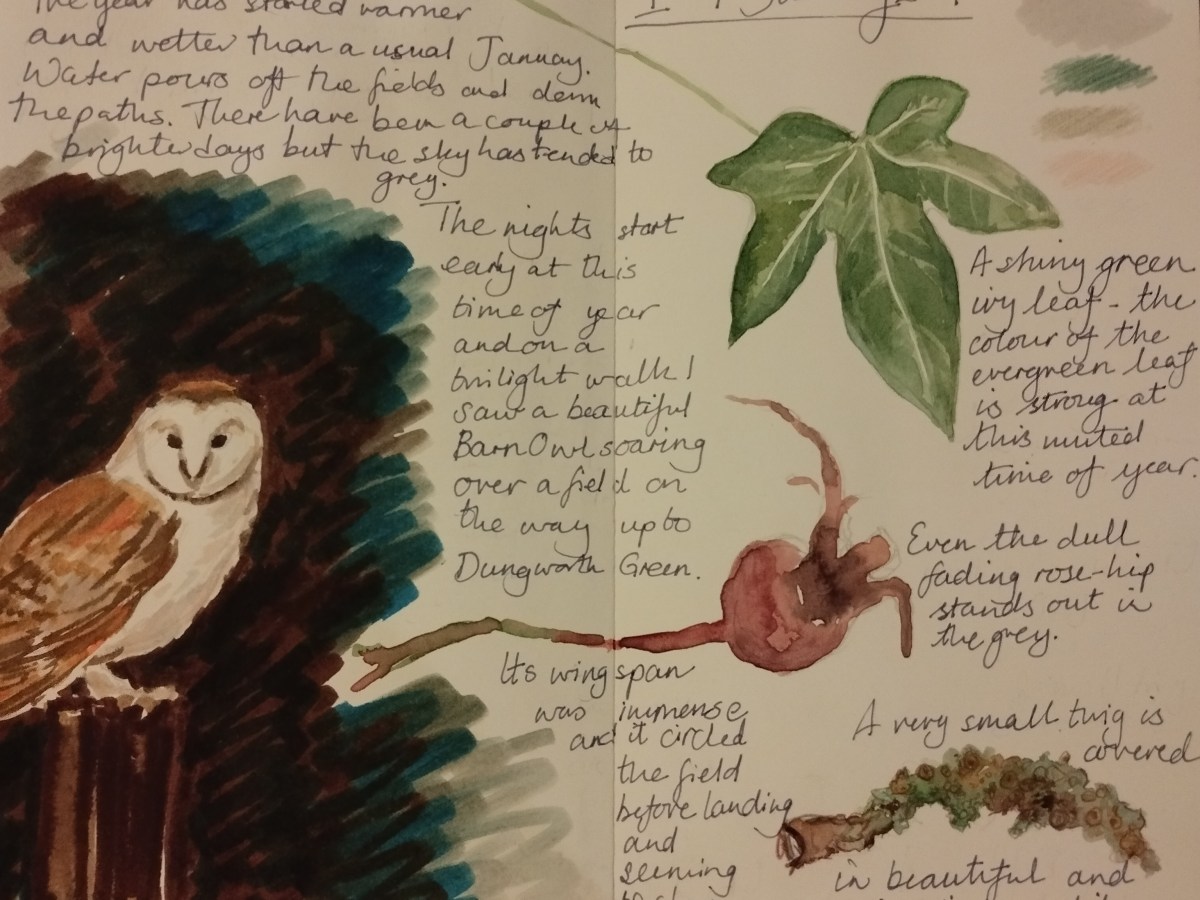 The year has started warmer
and wetter than a usual January.
Water pours off the fields and down
the paths. There have been a couple of
brighter days but the sky has tended to
grey.
The nights start
early at this
time of year
and on a
twilight walk I
saw a beautiful
Barn Owl soaring
over a field on
the way up to
Dungworth Green.
Its wingspan
was immense
and it circled
the field
before landing
and
seeming
A shiny green
ivy leaf - the
colour of the
evergreen leaf
is strong at
this muted
time of year.
Even the dull
fading rose-hip
stands out in
the grey.
A very small twig is
covered
in beautiful and